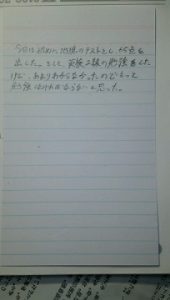 今日は初めに地理のテストをし、55点を
出した。そして、英検2級の勉強をした
けど、あまりわからなかったのでもっと
勉強しなければならないと思った。